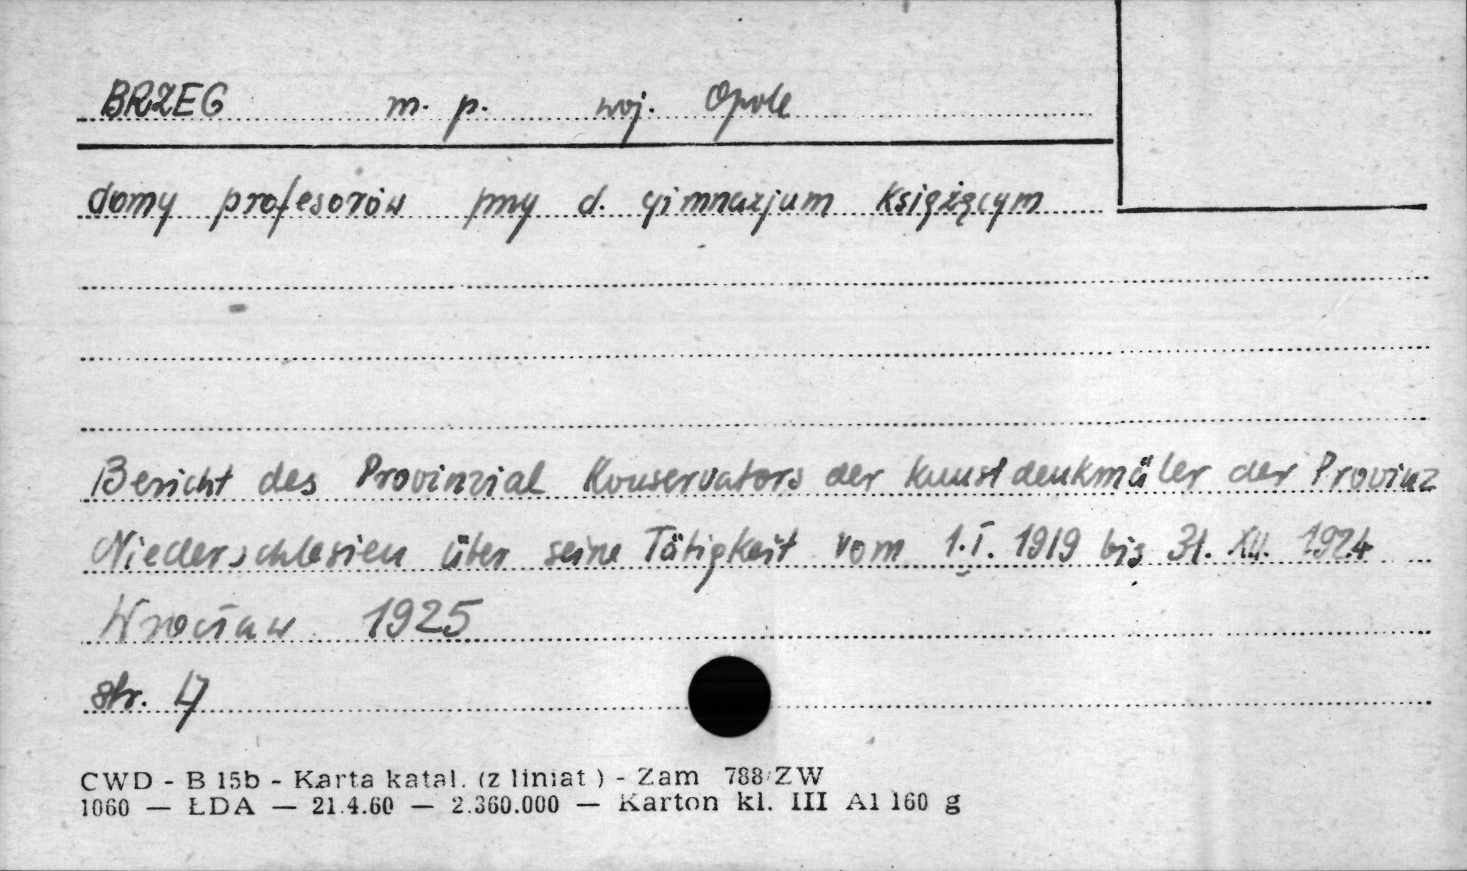 BRZEG m. p. woj. Opole
domy profesorów przy d. gimnazjum książęcym
Bericht des Provinzial Konservators der Kunstdenkmäler der Provinz
Niederschlesien über seine Tätigkeit vom 1.I. 1919 bis 31. XII. 1924
Wrocław 1925
str. 47
CWD - B 15b - Karta katal. (z liniat ) - Zam 788/ZW
1060 — ŁDA — 21.4.60 — 2.360.000 — Karton kl. III A1 160 g